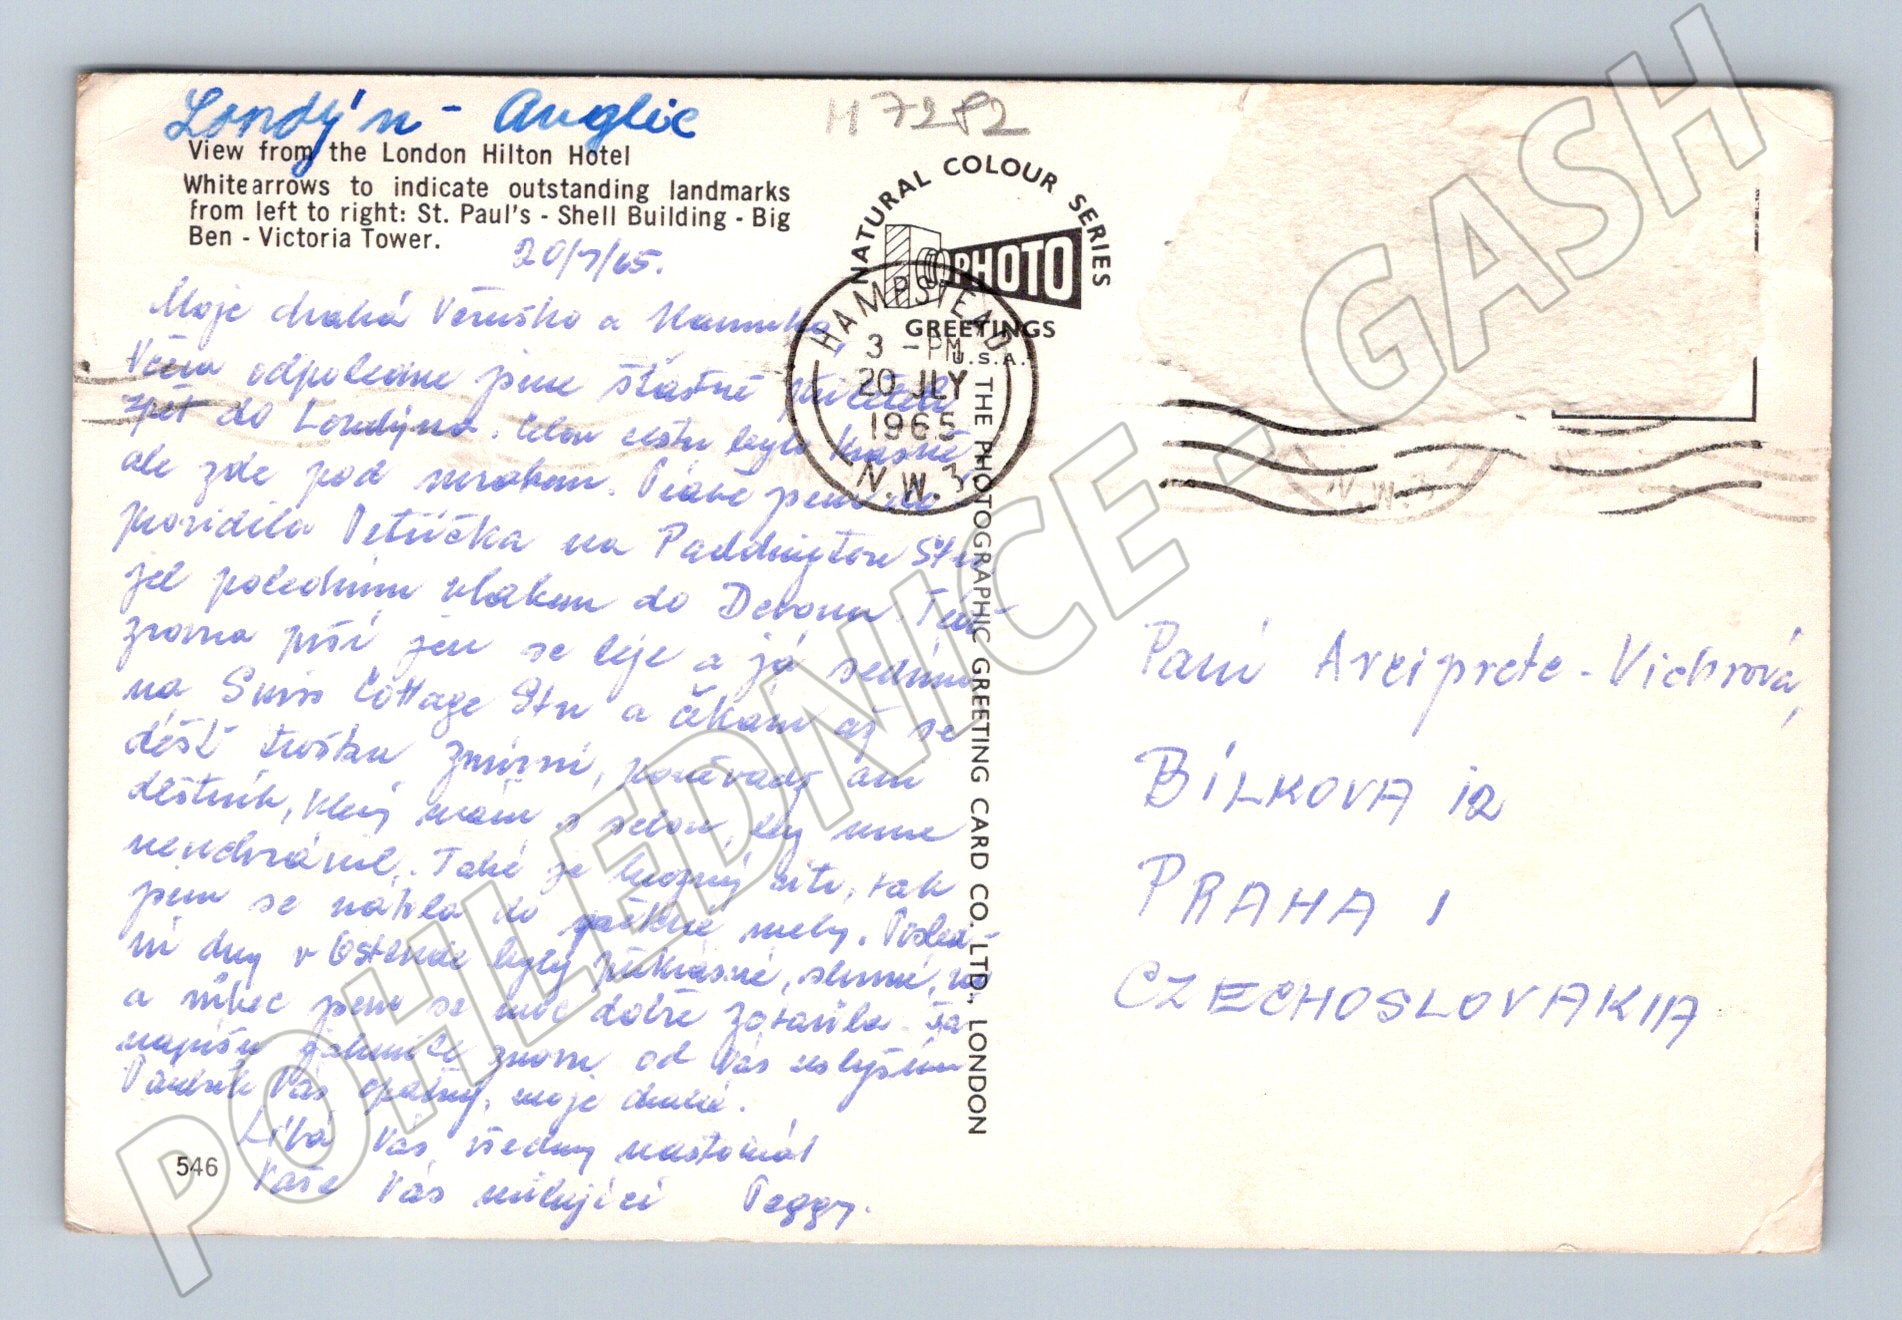 Londýn - Anglie
H 7282
View from the London Hilton Hotel
White arrows to indicate outstanding landmarks
from left to right: St. Paul's - Shell Building - Big
Ben - Victoria Tower.
20/7/65.
Moje drahá Věruško a
Včera odpoledne jsme šťastně přiletěli
zpět do Londýna. Celou cestu bylo krásně
ale zde pod mrakem. Právě jsem
Petříčka na Paddington Stn
jel poledním vlakem do Devonu. Teď
zrovna prší jen se leje a já sedím
na Swiss Cottage Stn a čekám až se
déšť trošku zmírní, poněvadž ani
deštník, který mám s sebou, by mne
neuchránil. Také je
jsem se do pěkné Posled-
ní dny v Ostende byly překrásné, slunné,
a vůbec jsem se moc dobře zotavila.
napíšu znovu od Vás uslyším
Vás opatruj, moje drahé.
Líbá Vás všechny nastokrát
Vaše Vás milující Peggy.
546
NATURAL COLOUR SERIES
PHOTO
GREETINGS
U.S.A.
HAMPSTEAD
3 - PM
20 JLY
1965
N.W.3
THE PHOTOGRAPHIC GREETING CARD CO. LTD., LONDON
N.W.3
Paní Arciprete-Vichrová,
BÍLKOVA 12
PRAHA 1
CZECHOSLOVAKIA
POHLEDNICE - GASH